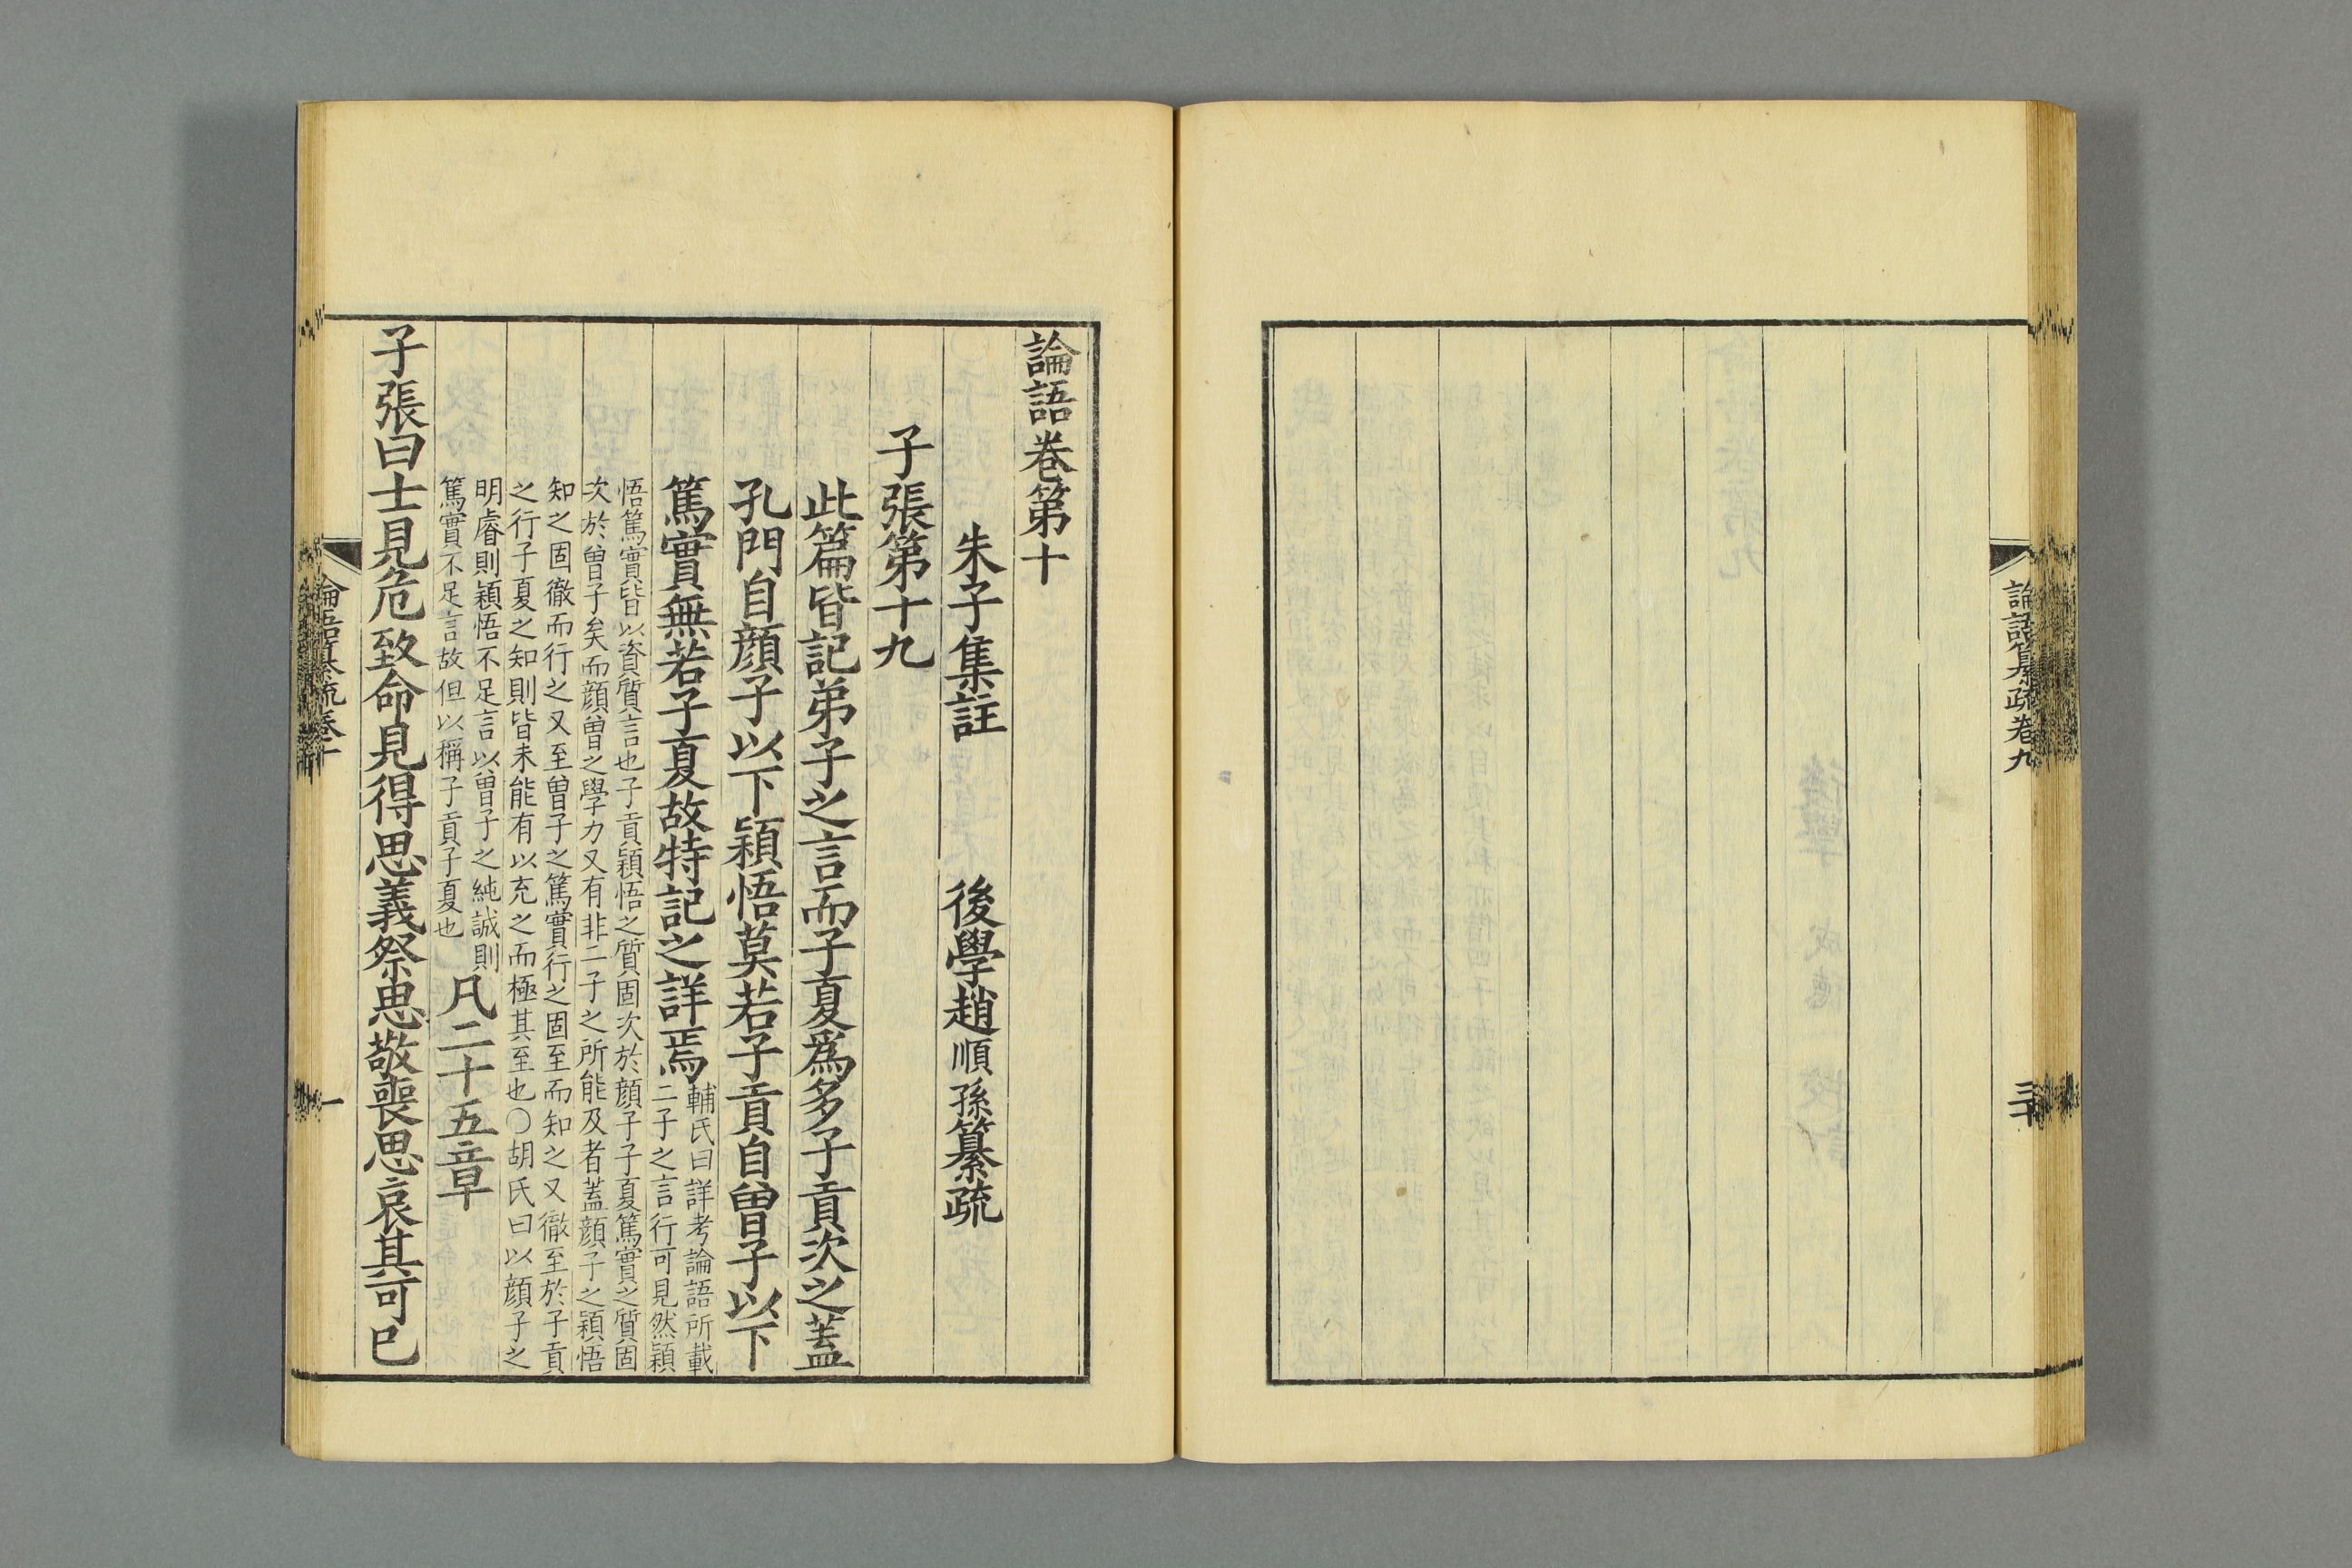 論語纂疏卷九
三十
論語卷第十
朱子集註　後學趙順孫纂疏
子張第十九
此篇皆記弟子之言而子夏爲多子貢次之蓋
孔門自顔子以下穎悟莫若子貢自曾子以下
篤實無若子夏故特記之詳焉
輔氏曰詳考論語所載
二子之言行可見然穎
悟篤實皆以資質言也子貢穎悟之質固次於顔子子夏篤實之質固
次於曾子矣而顔曾之學力又有非二子之所能及者蓋顔子之穎悟
知之固徹而行之又至曾子之篤實行之固至而知之又徹至於子貢
之行子夏之知則皆未能有以充之而極其至也〇胡氏曰以顔子之
明睿則穎悟不足言以曾子之純誠則
篤實不足言故但以稱子貢子夏也
凡二十五章
子張曰士見危致命見得思義祭思敬喪思哀其可已
論語纂疏卷十
一